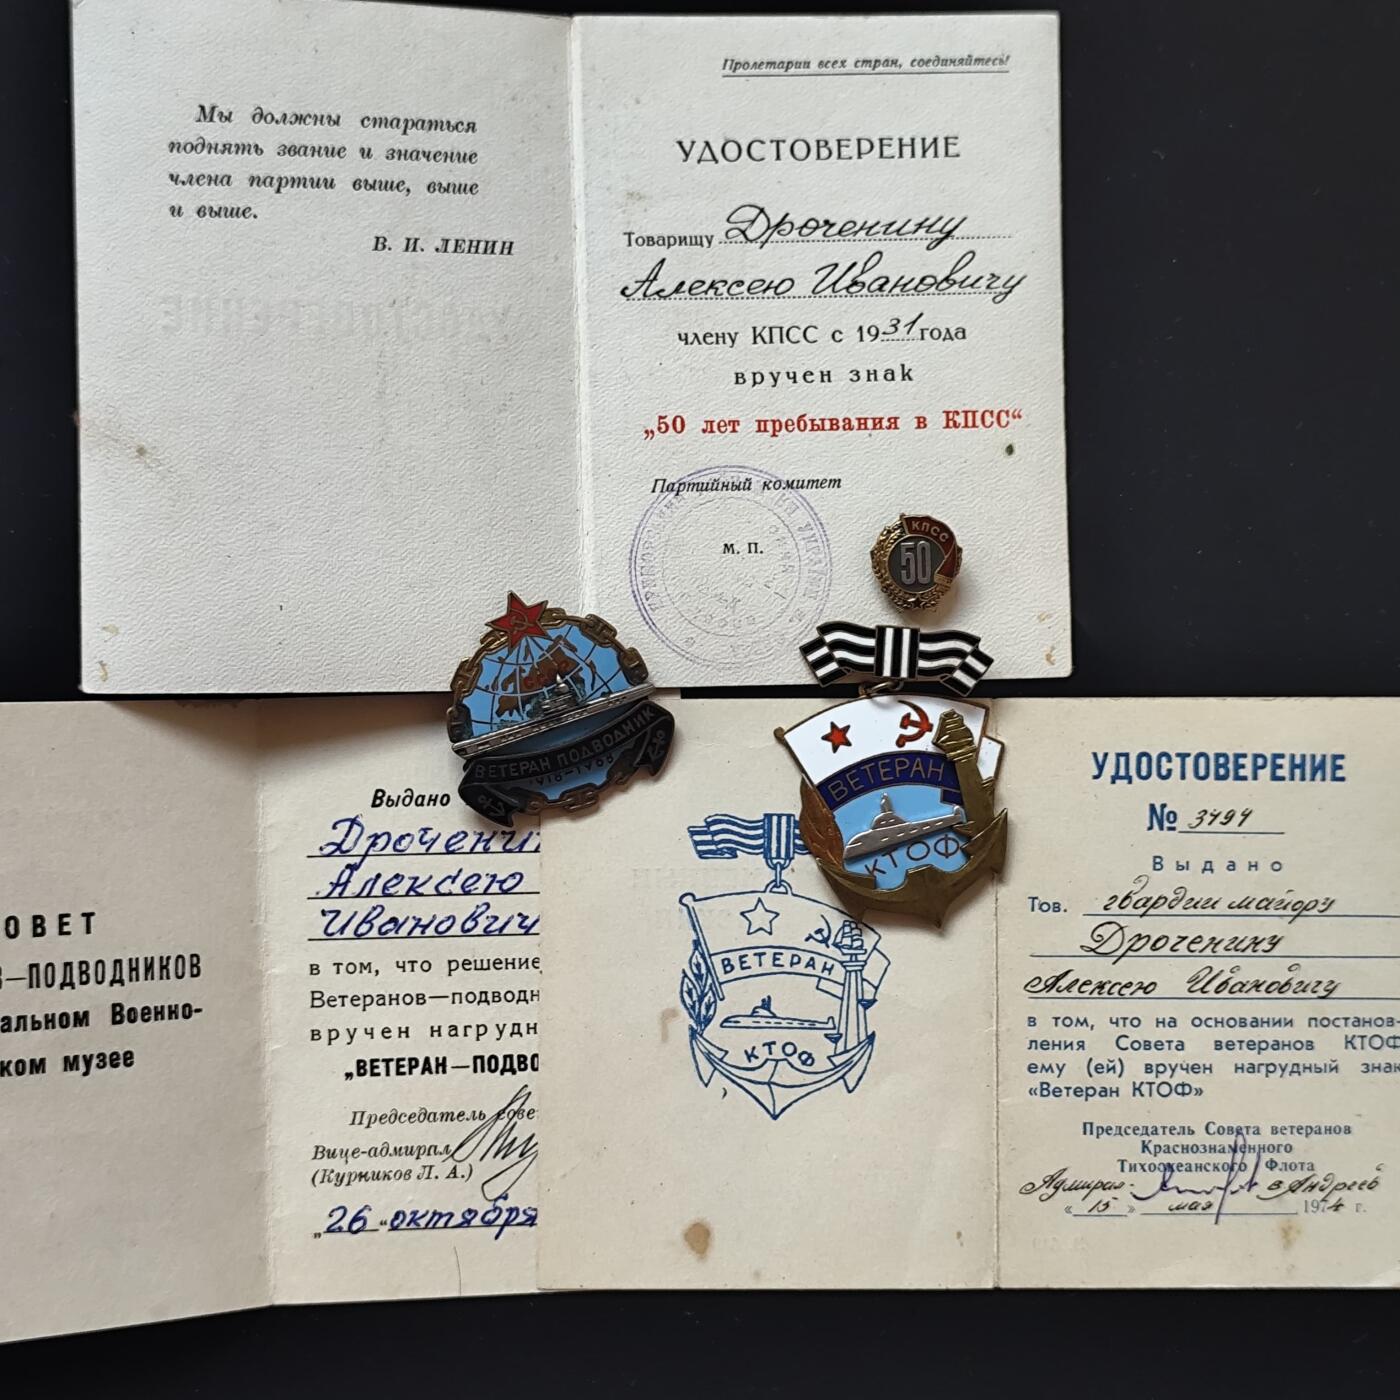 Мы должны стараться
поднять звание и значение
члена партии выше, выше
и выше.
В. И. ЛЕНИН
Пролетарии всех стран, соединяйтесь!
УДОСТОВЕРЕНИЕ
Товарищу Дроченину
Алексею Ивановичу
члену КПСС с 1931 года
вручен знак
„50 лет пребывания в КПСС“
Партийный комитет
м. п.
КПСС
50
ВЕТЕРАН ПОДВОДНИК
1918-1968
ВЕТЕРАН
КТОФ
ОВЕТ
В—ПОДВОДНИКОВ
альном Военно-
ком музее
Выдано
Дроченин
Алексею
Иванович
в том, что решение
Ветеранов—подводн
вручен нагрудн
„ВЕТЕРАН—ПОДВО
Председатель сове
Вице-адмирал
(Курников Л. А.)
„26 “ октября
ВЕТЕРАН
КТОФ
УДОСТОВЕРЕНИЕ
№ 3494
Выдано
Тов. гвардии майору
Дроченину
Алексею Ивановичу
в том, что на основании постанов-
ления Совета ветеранов КТОФ
ему (ей) вручен нагрудный знак
«Ветеран КТОФ»
Председатель Совета ветеранов
Краснознаменного
Тихоокеанского Флота
Адмирал- в Андреев
« 15 » мая 1974 г.